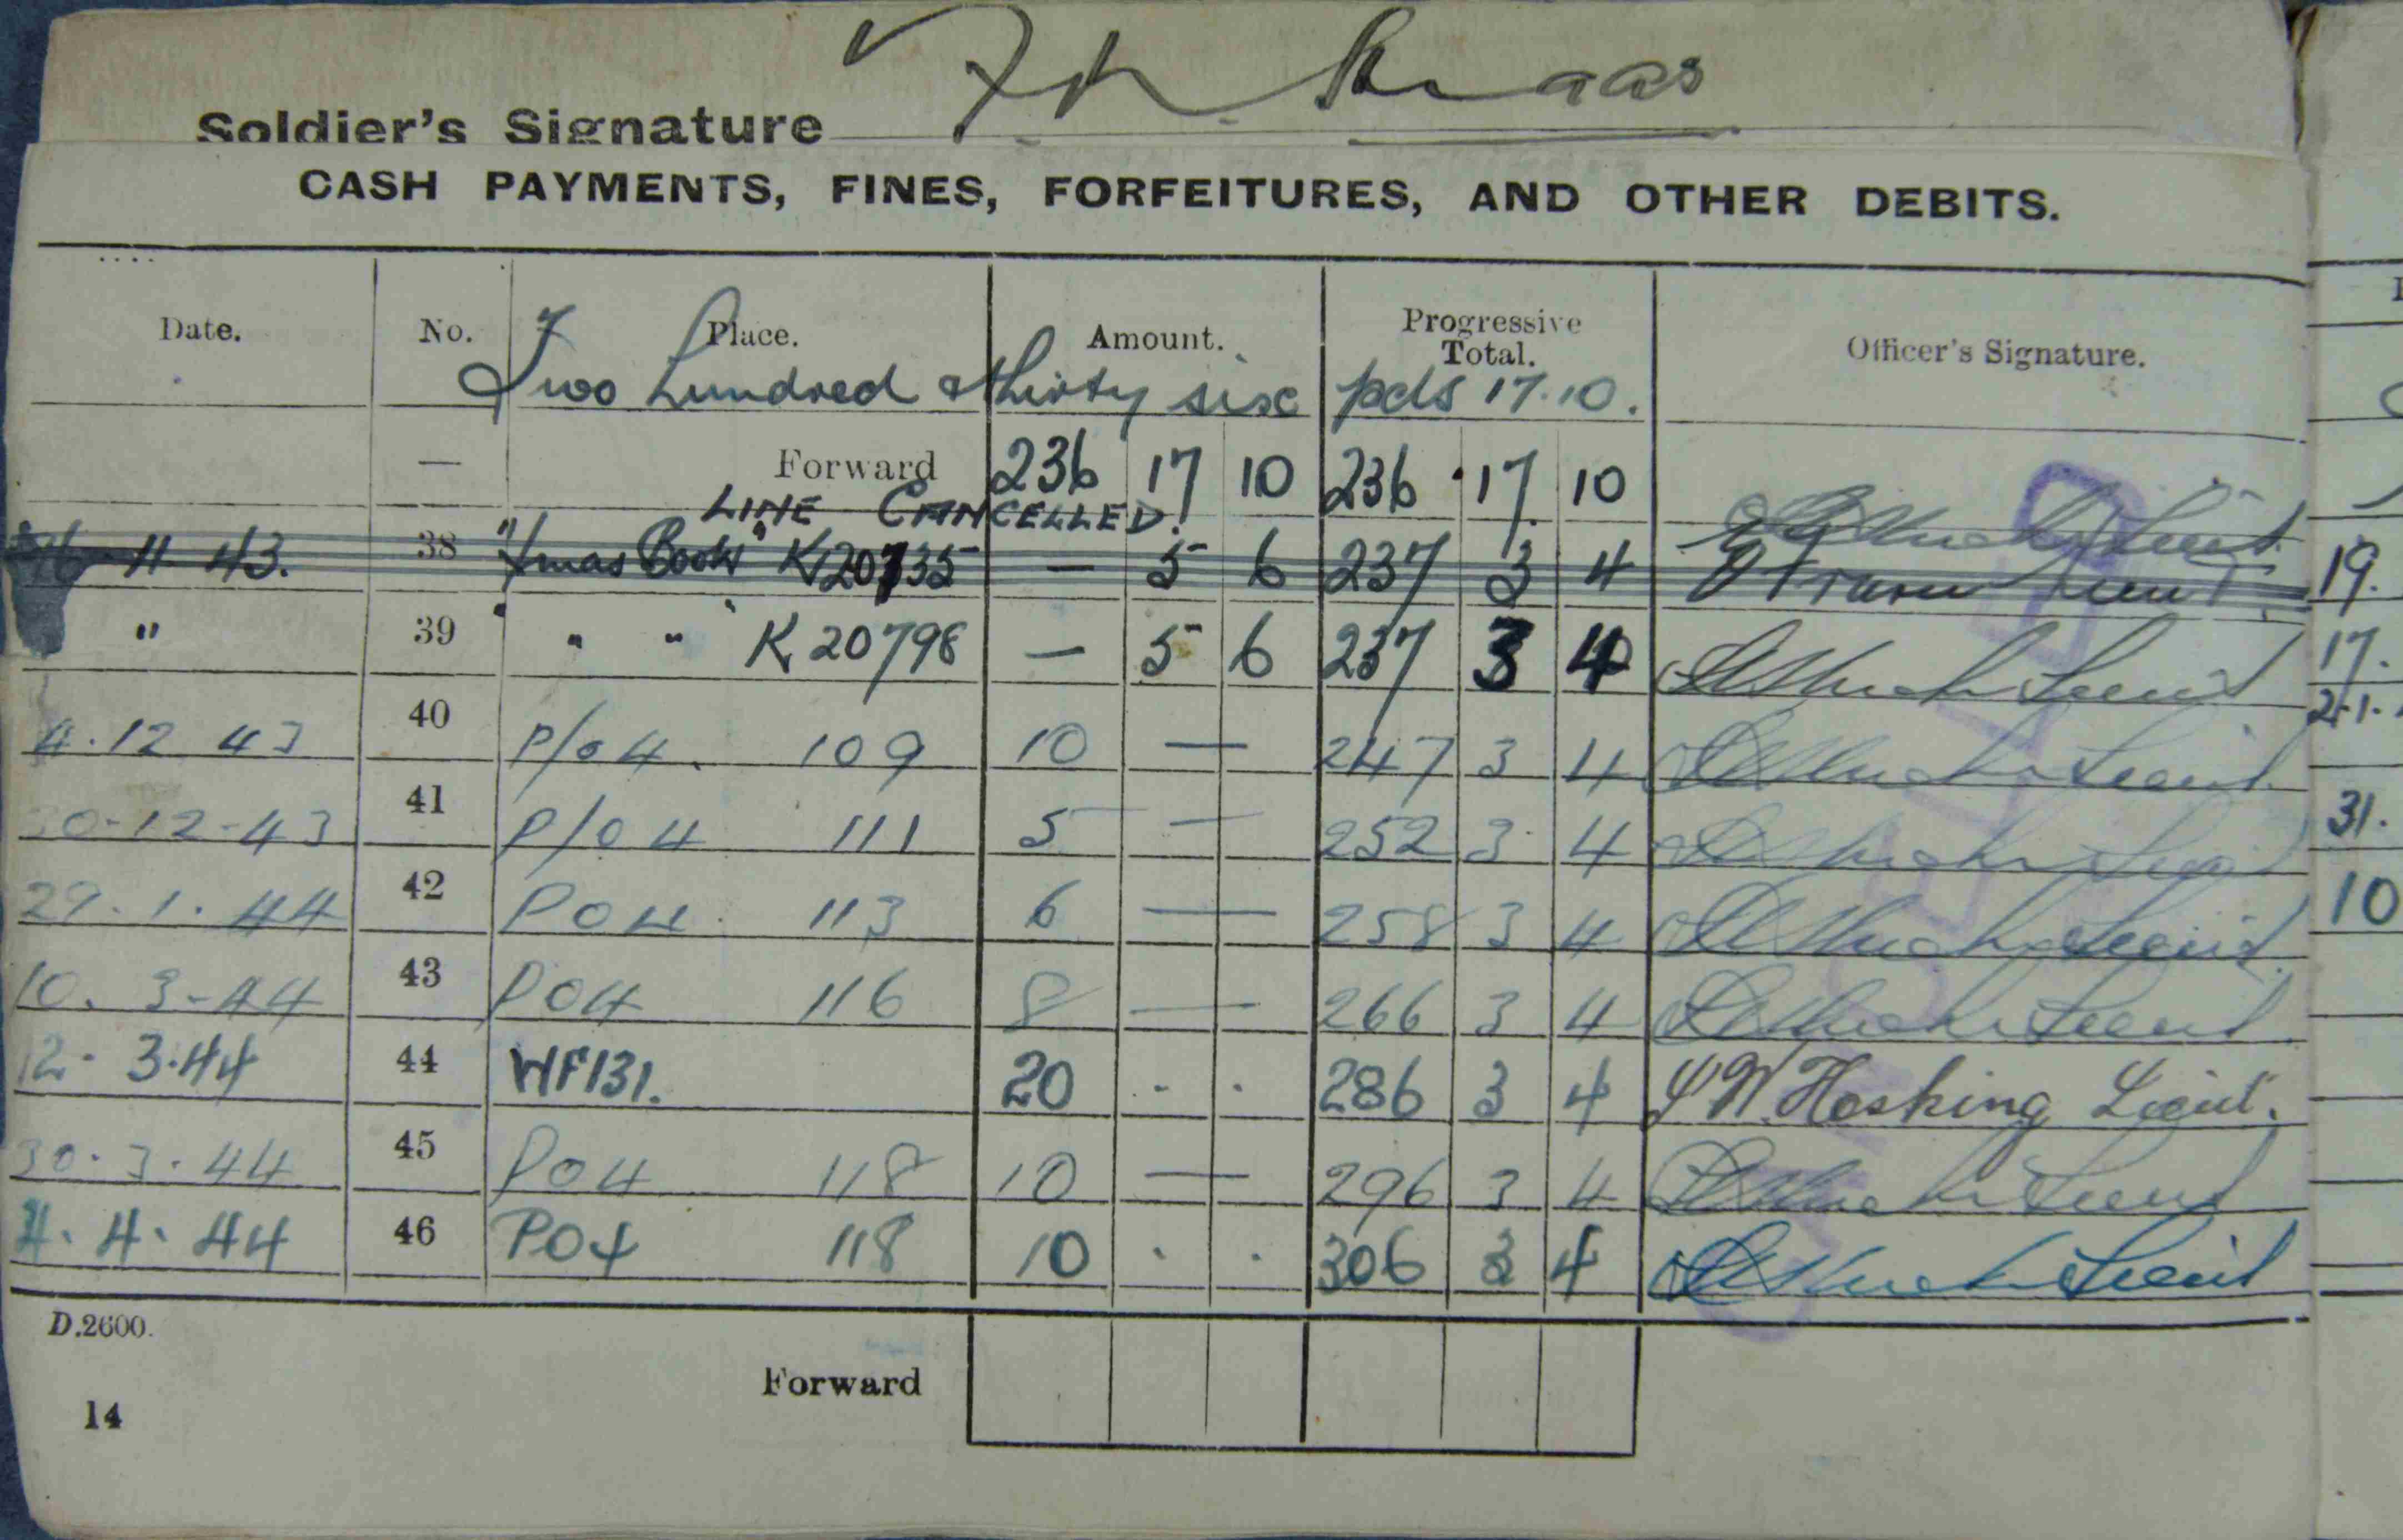 Soldier's Signature
CASH PAYMENTS, FINES, FORFEITURES, AND OTHER DEBITS.
Date. No. Place. Amount. Progressive Total. Officer's Signature.
Two hundred & thirty six pds 17.10.
— Forward 236 17 10 236 17 10
LINE CANCELLED.
11 43. 38 "Xmas Book" K20735 — 5 6 237 3 4
" 39 " " K20798 — 5 6 237 3 4
4.12 43 40 P/o 4. 109 10 — 247 3 4
0-12-43 41 P/o 4 111 5 — 252 3 4
29.1.44 42 PO4. 113 6 — 258 3 4
10. 3-44 43 PO4 116 8 — 266 3 4
12. 3.44 44 WF131. 20 . . 286 3 4 Hosking Lieut.
30.3.44 45 PO4 118 10 — 296 3 4 Lieut
4.4.44 46 PO4 118 10 . . 306 3 4 Lieut
D.2600.
Forward
14
19.
17.
21.
31.
10